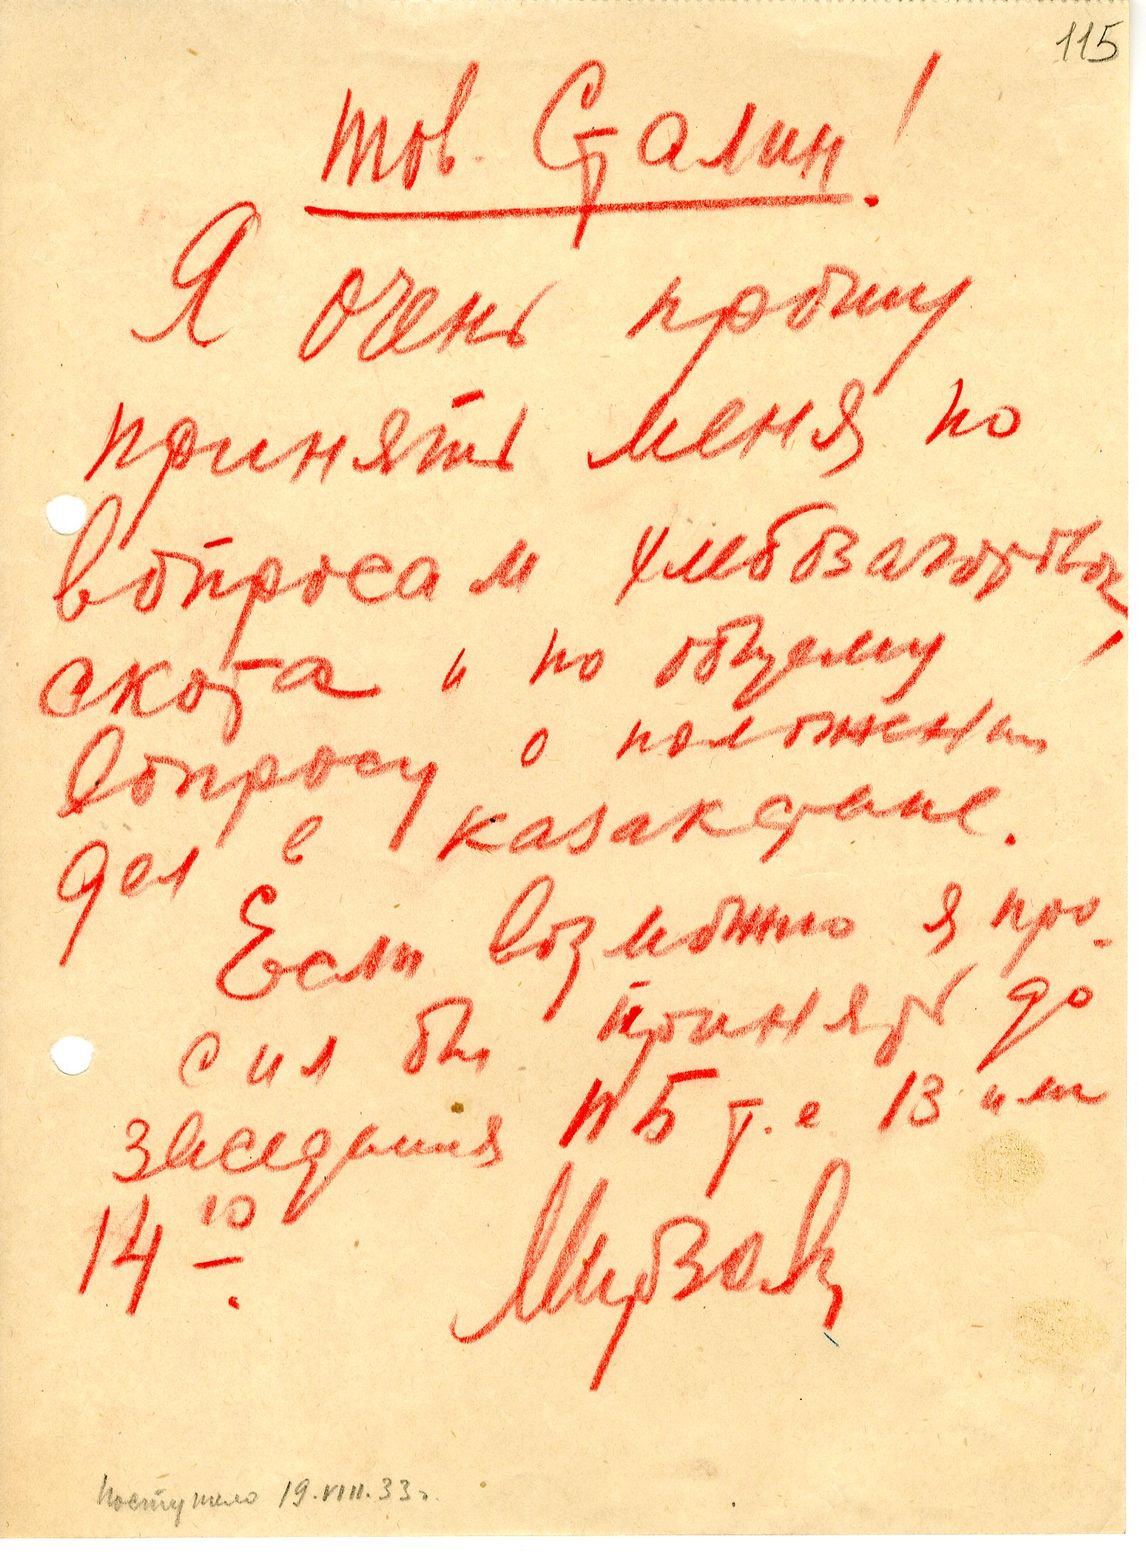 115
тов. Сталин!
Я очень прошу
принять меня по
вопросам хлебозаготовок,
скота и по общему
вопросу о положении
дел в казакстане.
Если возможно я про-
сил бы принять до
заседания ПБ т.е 13 или
14 10.
Мирзоян
Поступило 19.VIII.33г.